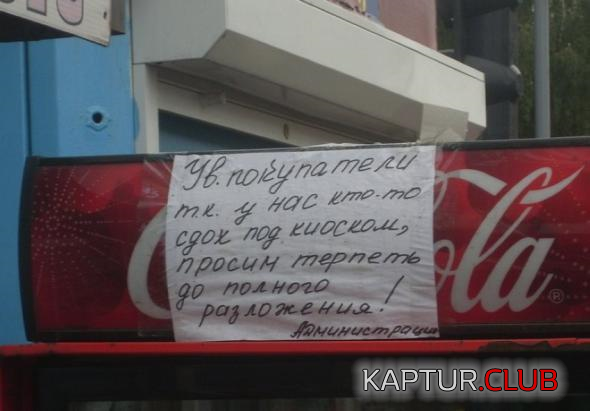 Ув. покупатели
т.к. у нас кто-то
сдох под киоском,
просим терпеть
до полного
разложения!
Администрация
Cola
®
KAPTUR.CLUB